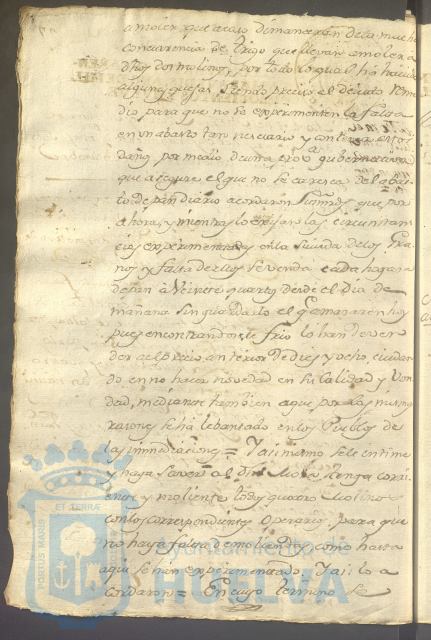 a moler que acaso dimanaran de la mucha
concurrencia de trigo que llevan a moler a
dhos dos molinos, por todo lo qual ha havido
algunas quejas siendo preciso el devido reme
dio para que no se experimente la falta
en un abasto tan nesesario y contener estos
daños por medio de una prova gubernativa
que asegure el que no se caresca del abas
to de pan diario acordaron sus mrds que por
ahora, y mientras lo exijan las circunstan
cias experimentadas en la suvida de los Gra
nos y falta de ellos se venda cada hogasa
de pan à Veinte quartos desde el dia de
mañana sin guardarlo el qe amasaren hoy
pues encontrandose frio lo han de ven
der al precio anterior de dies y ocho, cuidan
do en no hacer novedad en su calidad y Bon
dad, mediante tambien a que por las mismas
rasones se ha lebantado en los Pueblos de
las inmediaciones = Y asimismo se le intime
y haga saver al dho tenga corri
entes y moliente todos quatro Molinos
con los correspondientes Operarios, para que
no haya falta de moliendas, como hasta
aqui se ha experimentado, Y asi lo a
cordaron = En cuyo termino se
PORTUS MARIS
ET TERRÆ
ayuntamiento de
HUELVA